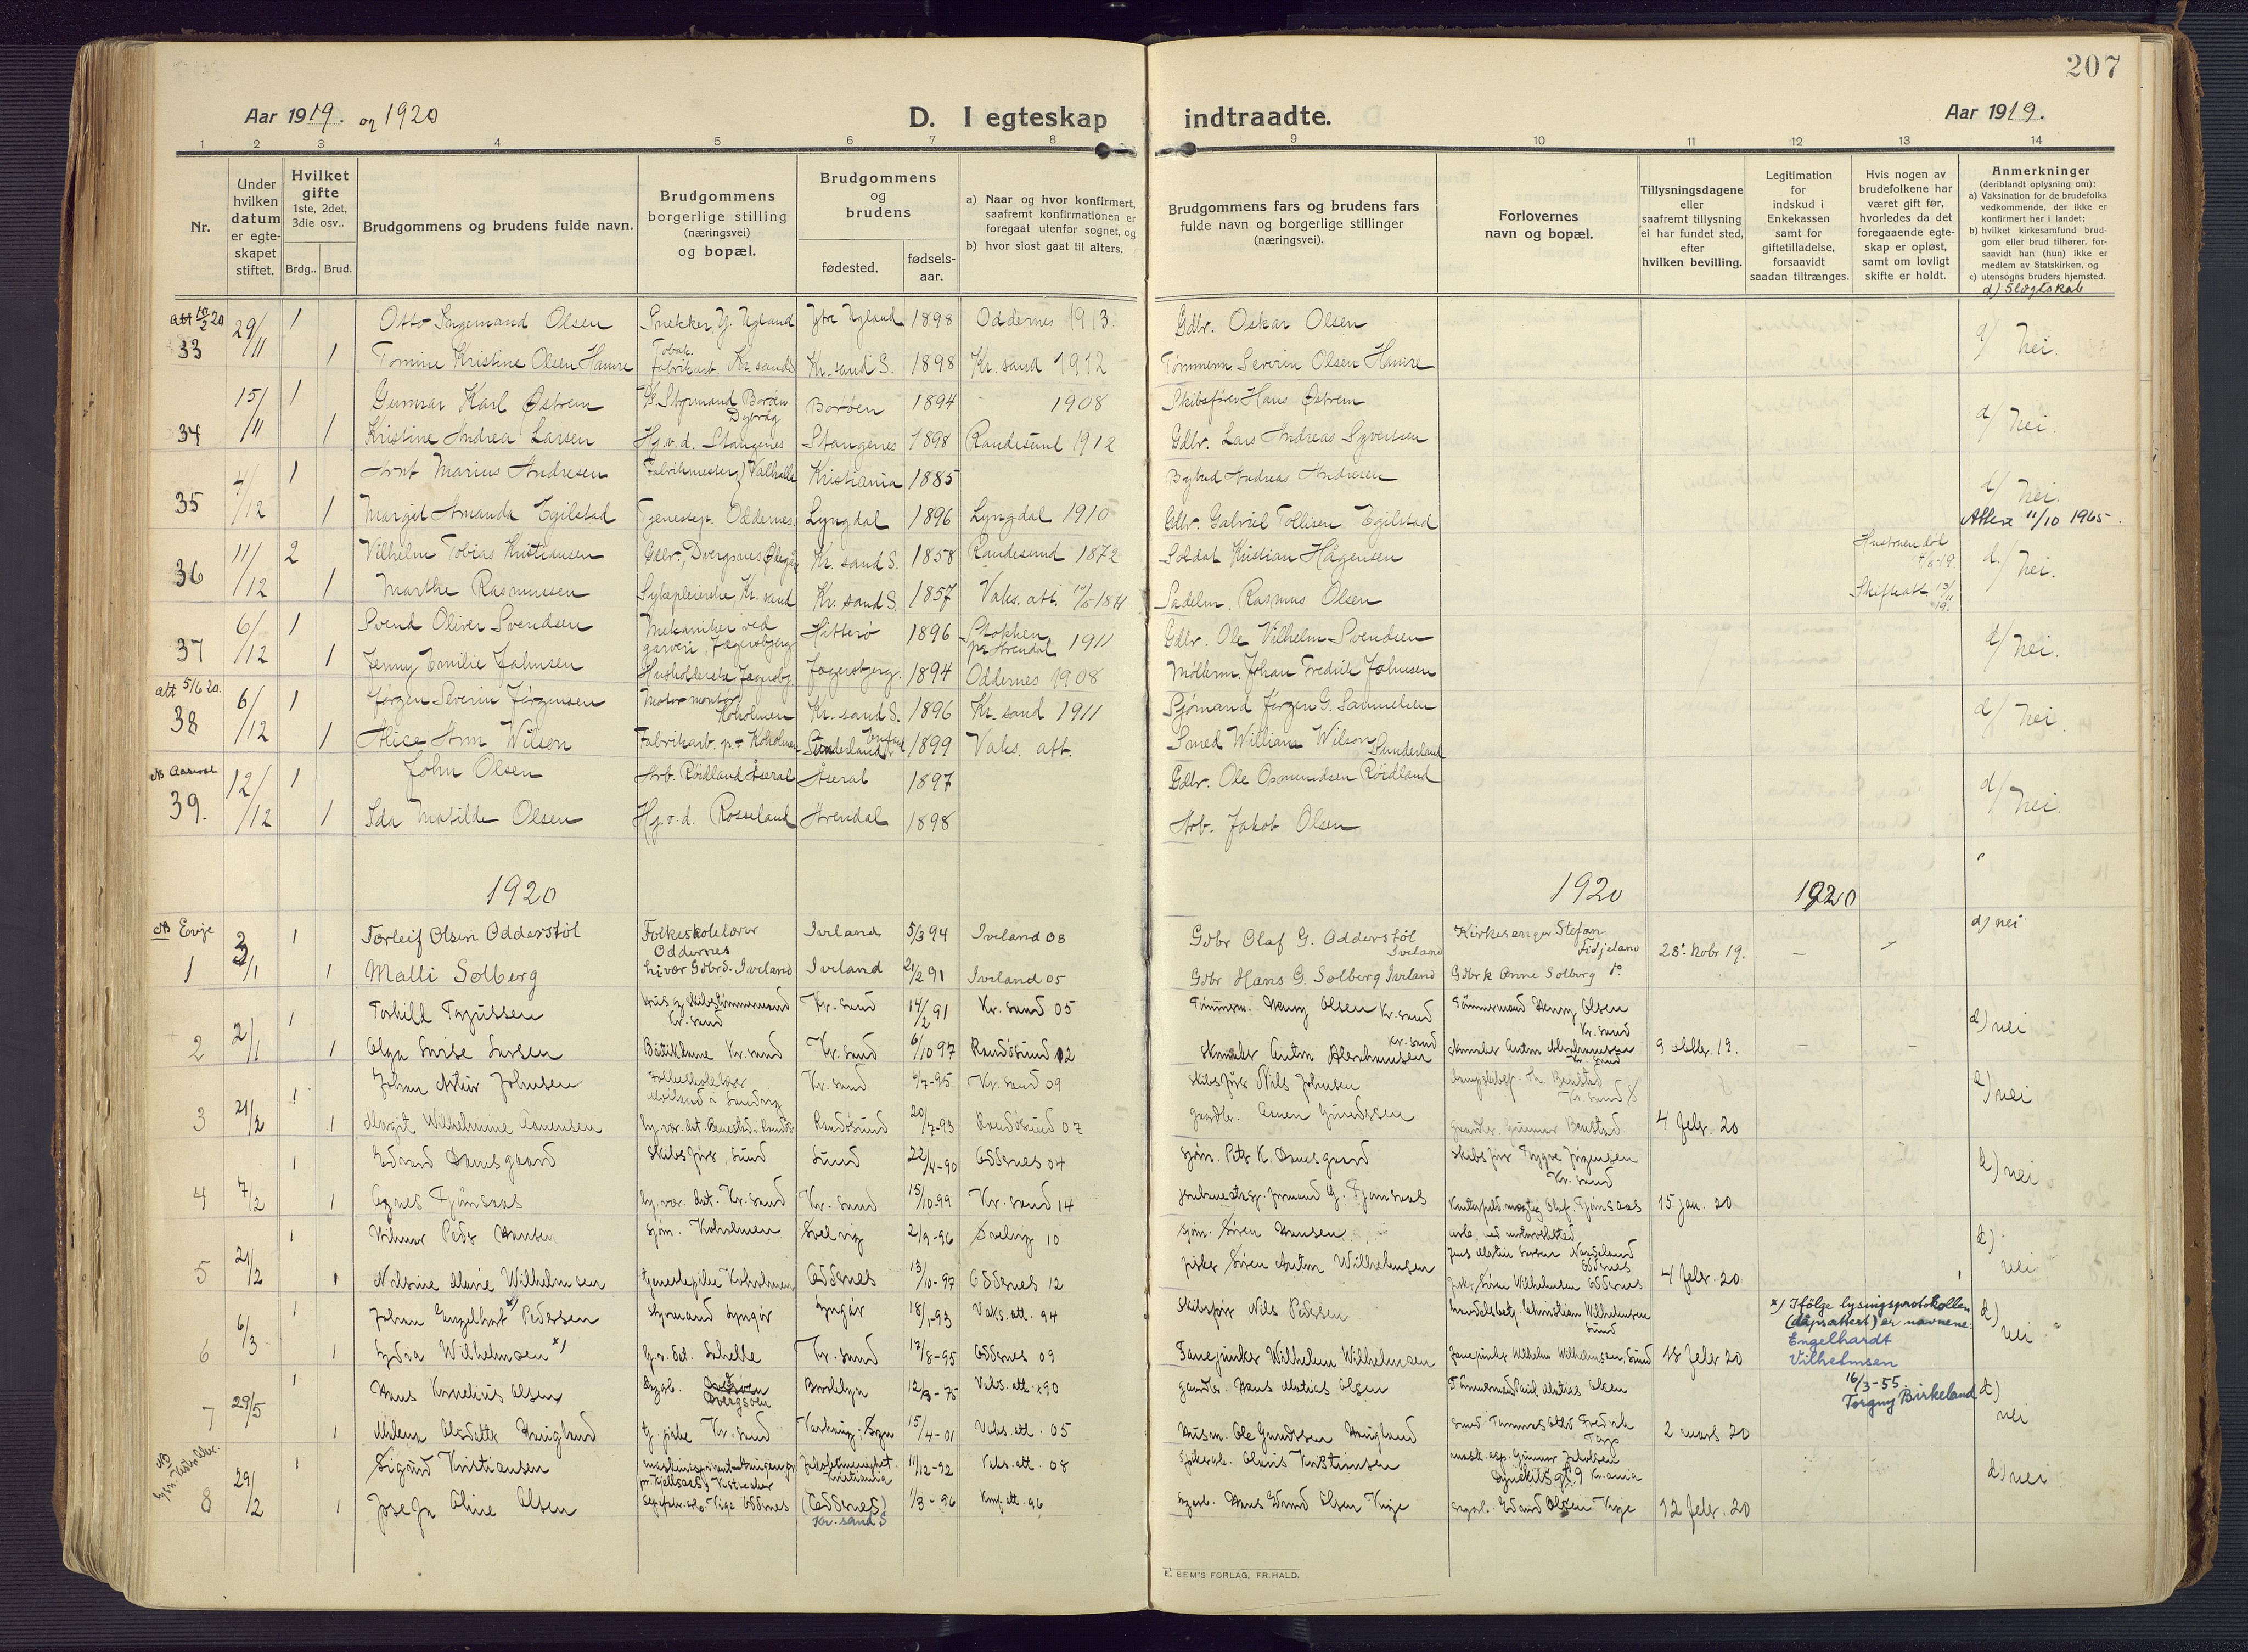 207
Aar 1919. og 1920
D. I egteskap indtraadte.
Aar 1919.
1 2 3 4 5 6 7 8 9 10 11 12 13 14
Nr.
Under hvilken datum er egte-skapet stiftet.
Hvilket gifte 1ste, 2det, 3die osv..
Brdg.. Brud.
Brudgommens og brudens fulde navn.
Brudgommens borgerlige stilling (næringsvei) og bopæl.
Brudgommens og brudens
fødested.
fødsels-aar.
a) Naar og hvor konfirmert, saafremt konfirmationen er foregaat utenfor sognet, og
b) hvor sidst gaat til alters.
Brudgommens fars og brudens fars fulde navn og borgerlige stillinger (næringsvei).
Forlovernes navn og bopæl.
Tillysningsdagene eller saafremt tillysning ei har fundet sted, efter hvilken bevilling.
Legitimation for indskud i Enkekassen samt for giftetilladelse, forsaavidt saadan tiltrænges.
Hvis nogen av brudefolkene har været gift før, hvorledes da det foregaaende egte-skap er opløst, samt om lovligt skifte er holdt.
Anmerkninger
(deriblandt oplysning om):
a) Vaksination for de brudefolks vedkommende, der ikke er konfirmert her i landet;
b) hvilket kirkesamfund brud-gom eller brud tilhører, for-saavidt han (hun) ikke er medlem av Statskirken, og
c) utensogns bruders hjemsted.
d) Slegtskab
att 10/2 20 29/11 1 Otto Ingemand Olsen Snekker Y. Ugland Ytre Ugland 1898 Oddernes 1913. Gdbr. Oskar Olsen d/ Nei.
33 1 Tomine Kristine Olsen Hamre Tobak. fabrikarb. Kr. sand Kr. sand S. 1898 Kr. sand 1912 Tømmerm. Severin Olsen Hamre
15/11 1 Gunnar Karl Østrem Styrmand Borøen Dybvåg Borøen 1894 1908 Skibsfører Hans Østrem d/ Nei.
34 1 Kristine Andrea Larsen Hj.v.d. Stangenes Stangenes 1898 Randesund 1912 Gdbr. Lars Andreas Syvertsen
4/12 1 Arnt Marius Andresen Fabrikmester, Valhalla Kristiania 1885 Bybud Andreas Andresen d/ Nei.
35 1 Margit Amanda Egilstad Tjenestep. Oddernes Lyngdal 1896 Lyngdal 1910 Gdbr. Gabriel Tollisen Egilstad Attest 11/10 1965.
11/12 2 Vilhelm Tobias Kristiansen Gdbr., Dvergsnes Kr. sand S. 1858 Randesund 1872 Soldat Kristian Hågensen Hustruen død 4/6-19. d. Nei.
36 1 Marthe Rasmussen Sykepleierske, Kr. sand Kr. sand S. 1857 Vaks. att. Sadelm. Rasmus Olsen Skifteatt 13/11 19.
6/12 1 Svend Oliver Svendsen Mekaniker ved garveri, Fagersbjerg Hitterø 1896 Stokken pr Arendal 1911 Gdbr. Ole Vilhelm Svendsen d/ Nei.
37 1 Jenny Emilie Johnsen Husholderske Fagersbj. Fagersbjerg. 1894 Oddernes 1908 Møllerm. Johan Fredrik Johnsen
att 5/6 20. 6/12 1 Jørgen Severin Jørgensen Motormontør Koholmen Kr. sand S. 1896 Kr. sand 1911 Sjømand Jørgen G. Samuelsen d/ Nei.
38 1 Alice Ann Wilson Fabrikarb. p.t. Koholmen Sunderland, England 1899 Vaks. att. Smed William Wilson Sunderland
NB Aaseral 12/12 1 John Olsen Arb. Røidland Åseral Åseral 1897 Gdbr. Ole Osmundsen Røidland d/ Nei.
39. 1 Ida Matilde Olsen Hj.v.d. Rosseland Arendal 1898 Arb. Jakob Olsen
1920 1920 1920
NB Evje 1 Torleif Olsen Odderstöl Folkeskolelærer Oddernes Iveland 5/3 94 Iveland 08 Gdbr Olaf G. Odderstöl Iveland Kirkesanger Stefan Fidjeland 28. Nobr 19. – d) nei
1 3/1 1 Malli Solberg hj.vær Gdbrd. Iveland Iveland 21/2 91 Iveland 05 Gdbr Hans G. Solberg Iveland Gdbrk Anne Solberg
2/1 1 Torkild Hus og Skibstømmermand Kr. sand Kr. sand 14/2 91 Kr. sand 05 Tömmerm. Olsen Kr. sand Tömmermand Olsen Kr. sand d) nei
2 1 Olga Lovise Larsen Bötikdame Kr. sand Kr. sand 6/10 97 Randösund 12 Anton Abrahamsen Kr. sand Anton Abrahamsen Kr. sand 9 19. – –
1 Johan Artur Johnsen Folkeskolelærer Kr. sand 6/7-95 Kr. sand 09 Skibsförer Nils Johnsen Kr. sand S d) nei
3 21/2 1 Margit Wilhelmine Aanensen Randösund 20/7-93 Randösund 07 gaardbr. Aanen Gundersen gaardbr. Gunnar Benestad 4 febr. 20
1 Edvard Damsgaard Skibsförer, Lund Lund 22/4-90 Oddernes 04 sjøm. Peter K. Damsgaard Skibsförer Trygve Jørgensen Kr. sand d) nei
4 7/2 1 Agnes Tjömsaas hj. vær. dat. Kr. sand Kr. sand 15/10-99 Kr. sand 14 Olaf Tjömsaas 15 jan. 20
1 Hilmar Peder Hansen sjøm. Koholmen Svelvig 2/9-96 Svelvig 10 sjøm. Sören Hansen Jens Martin Larsen Oddernes d) nei
5 21/2 1 Nilsine Marie Wilhelmsen tjenestepike Koholmen Oddernes 13/10-97 Oddernes 12 fisker Sören Anton Wilhelmsen fisker Sören Wilhelmsen Oddernes 4 febr. 20
1 Johan Engelhart x) Pedersen Styrmand Lyngör Lyngör 18/1-93 Vaks. att. 94 Skibsförer Nils Pedersen Christian Wilhelmsen Lund x) Ifölge lysingsprotokollen (dåpsattest) er navnene: Engelhardt Vilhelmsen 16/3-55. Torgny Birkeland d) nei
6 6/3 1 Lydia Wilhelmsen x) Kr. sand 12/8-95 Oddernes 09 Fanejunker Wilhelm Wilhelmsen Fanejunker Wilhelm Wilhelmsen, Lund 18 febr 20
1 Hans Kornelius Olsen Dvergsöen Brooklyn 12/3-75 Vaks. att. 90 gaardbr. Hans Matias Olsen Tömmermand Matias Olsen d) nei
7 29/5 1 tj. pike Kr. sand 15/4-01 Vaks. att. 05 Husm. Ole Fredrik 2 mars 20
NB 1 Sigurd Kristiansen Kristiania 11/12-92 Vaks. att. 08 Kristiansen Gunnar Jakobsen Kr.ania d) nei
8 29/2 1 Aline Olsen Oddernes (Oddernes) Kr. sand S 1/3-96 Konf. att. 96 Hans Edvard Olsen Edvard Olsen 12 febr. 20
E. SEM'S FORLAG, FR.HALD.